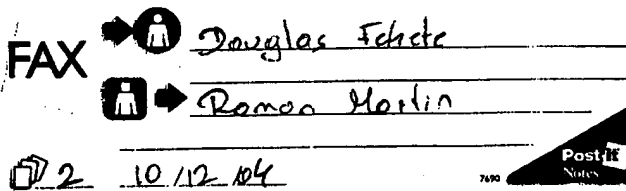 FAX
Douglas Fehete
Ramon Martin
2 10/12/04
7690
Post-it
Notes